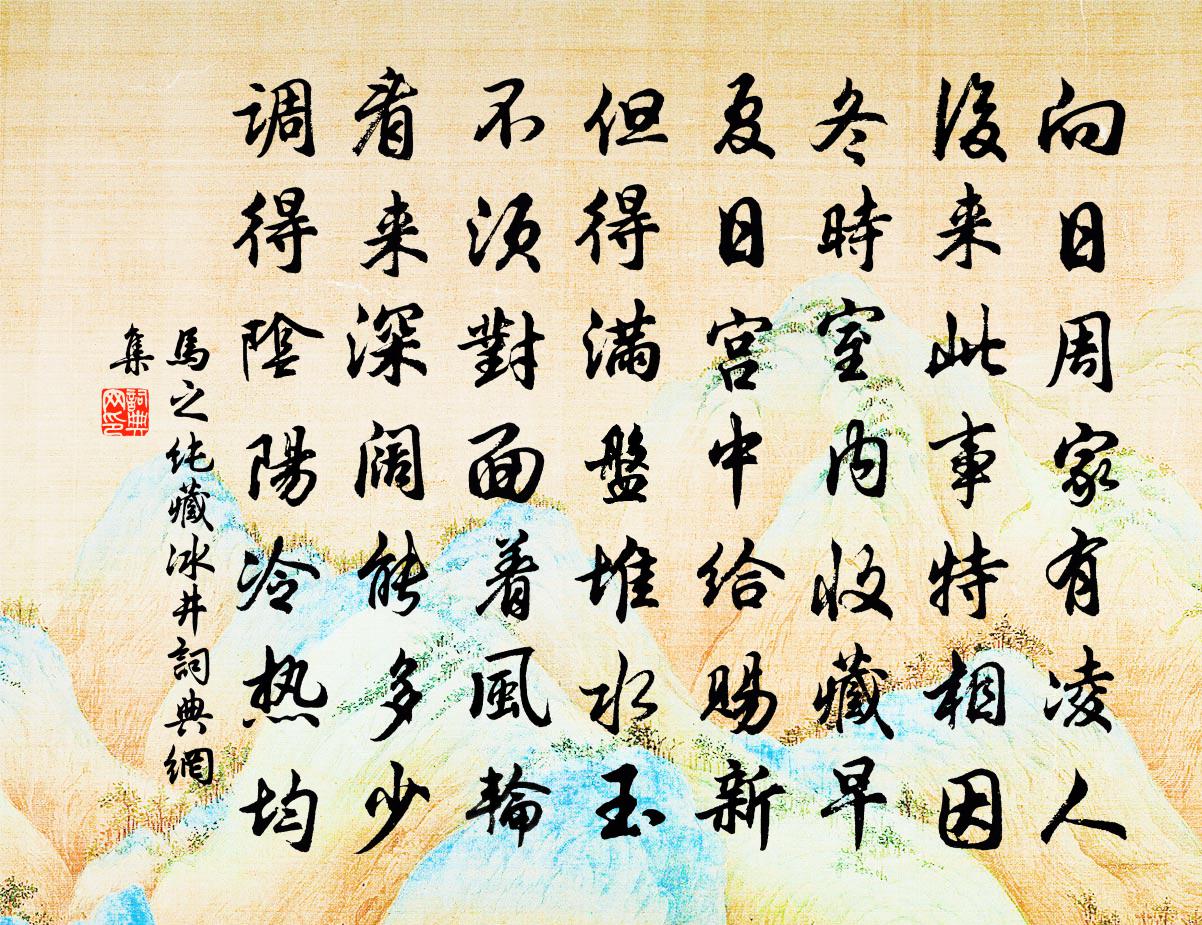 向日周家有凌人
後来此事特相因
冬時室内收藏早
夏日宫中给赐新
但得满盤堆水玉
不须對面着風輪
看来深阔能多少
调得陰陽冷热均
馬之纯藏冰井詞典網
集
詞典网印